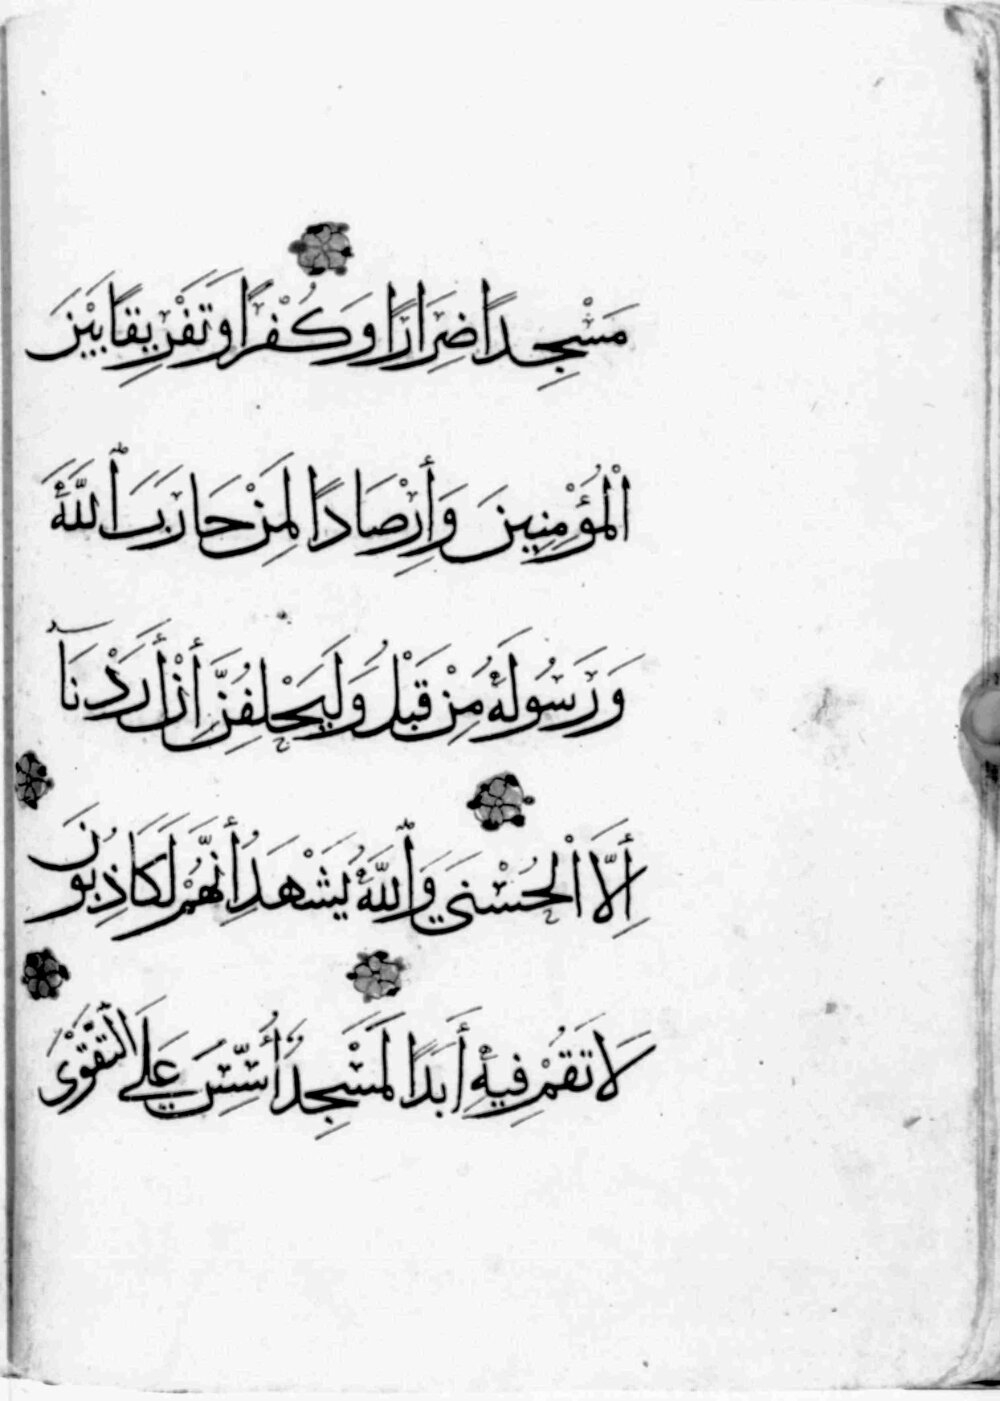 مَسْجِدًا ضِرَارًا وَكُفْرًا وَتَفْرِيقًا بَيْنَ
الْمُؤْمِنِينَ وَأِرْصَادًا لِمَنْ حَارَبَ اللَّهَ
وَرَسُولَهُ مِنْ قَبْلُ وَلَيَحْلِفُنَّ أِنْ أَرَدْنَآ
أِلَّا الْحُسْنَي وَاللَّهُ يَشْهَدُ أِنَّهُمْ لَكَاذِبُونَ
لَا تَقُمْ فِيهِ أَبَدًا لَمَسْجِدٌ أُسِّسَ عَلَي التَّقْوَى